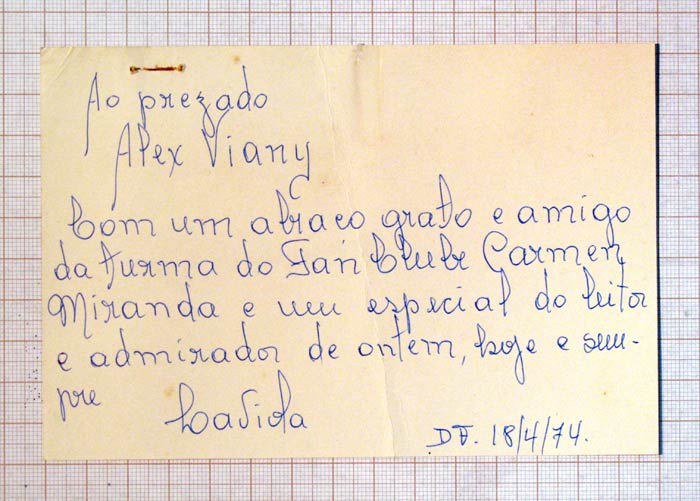 Ao prezado
Alex Viany
Com um abraço grato e amigo
da turma do Fan Clube Carmen
Miranda e um especial do leitor
e admirador de ontem, hoje e sem-
pre
DF. 18/4/74.